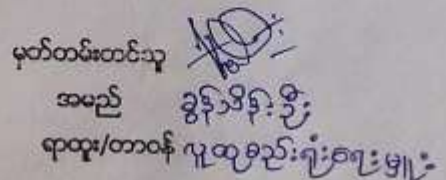 မှတ်တမ်းတင်သူ
အမည် ခွန်ဒိန်းဦး
ရာထူး/တာဝန် လူထုစည်းရုံးရေးမှူး